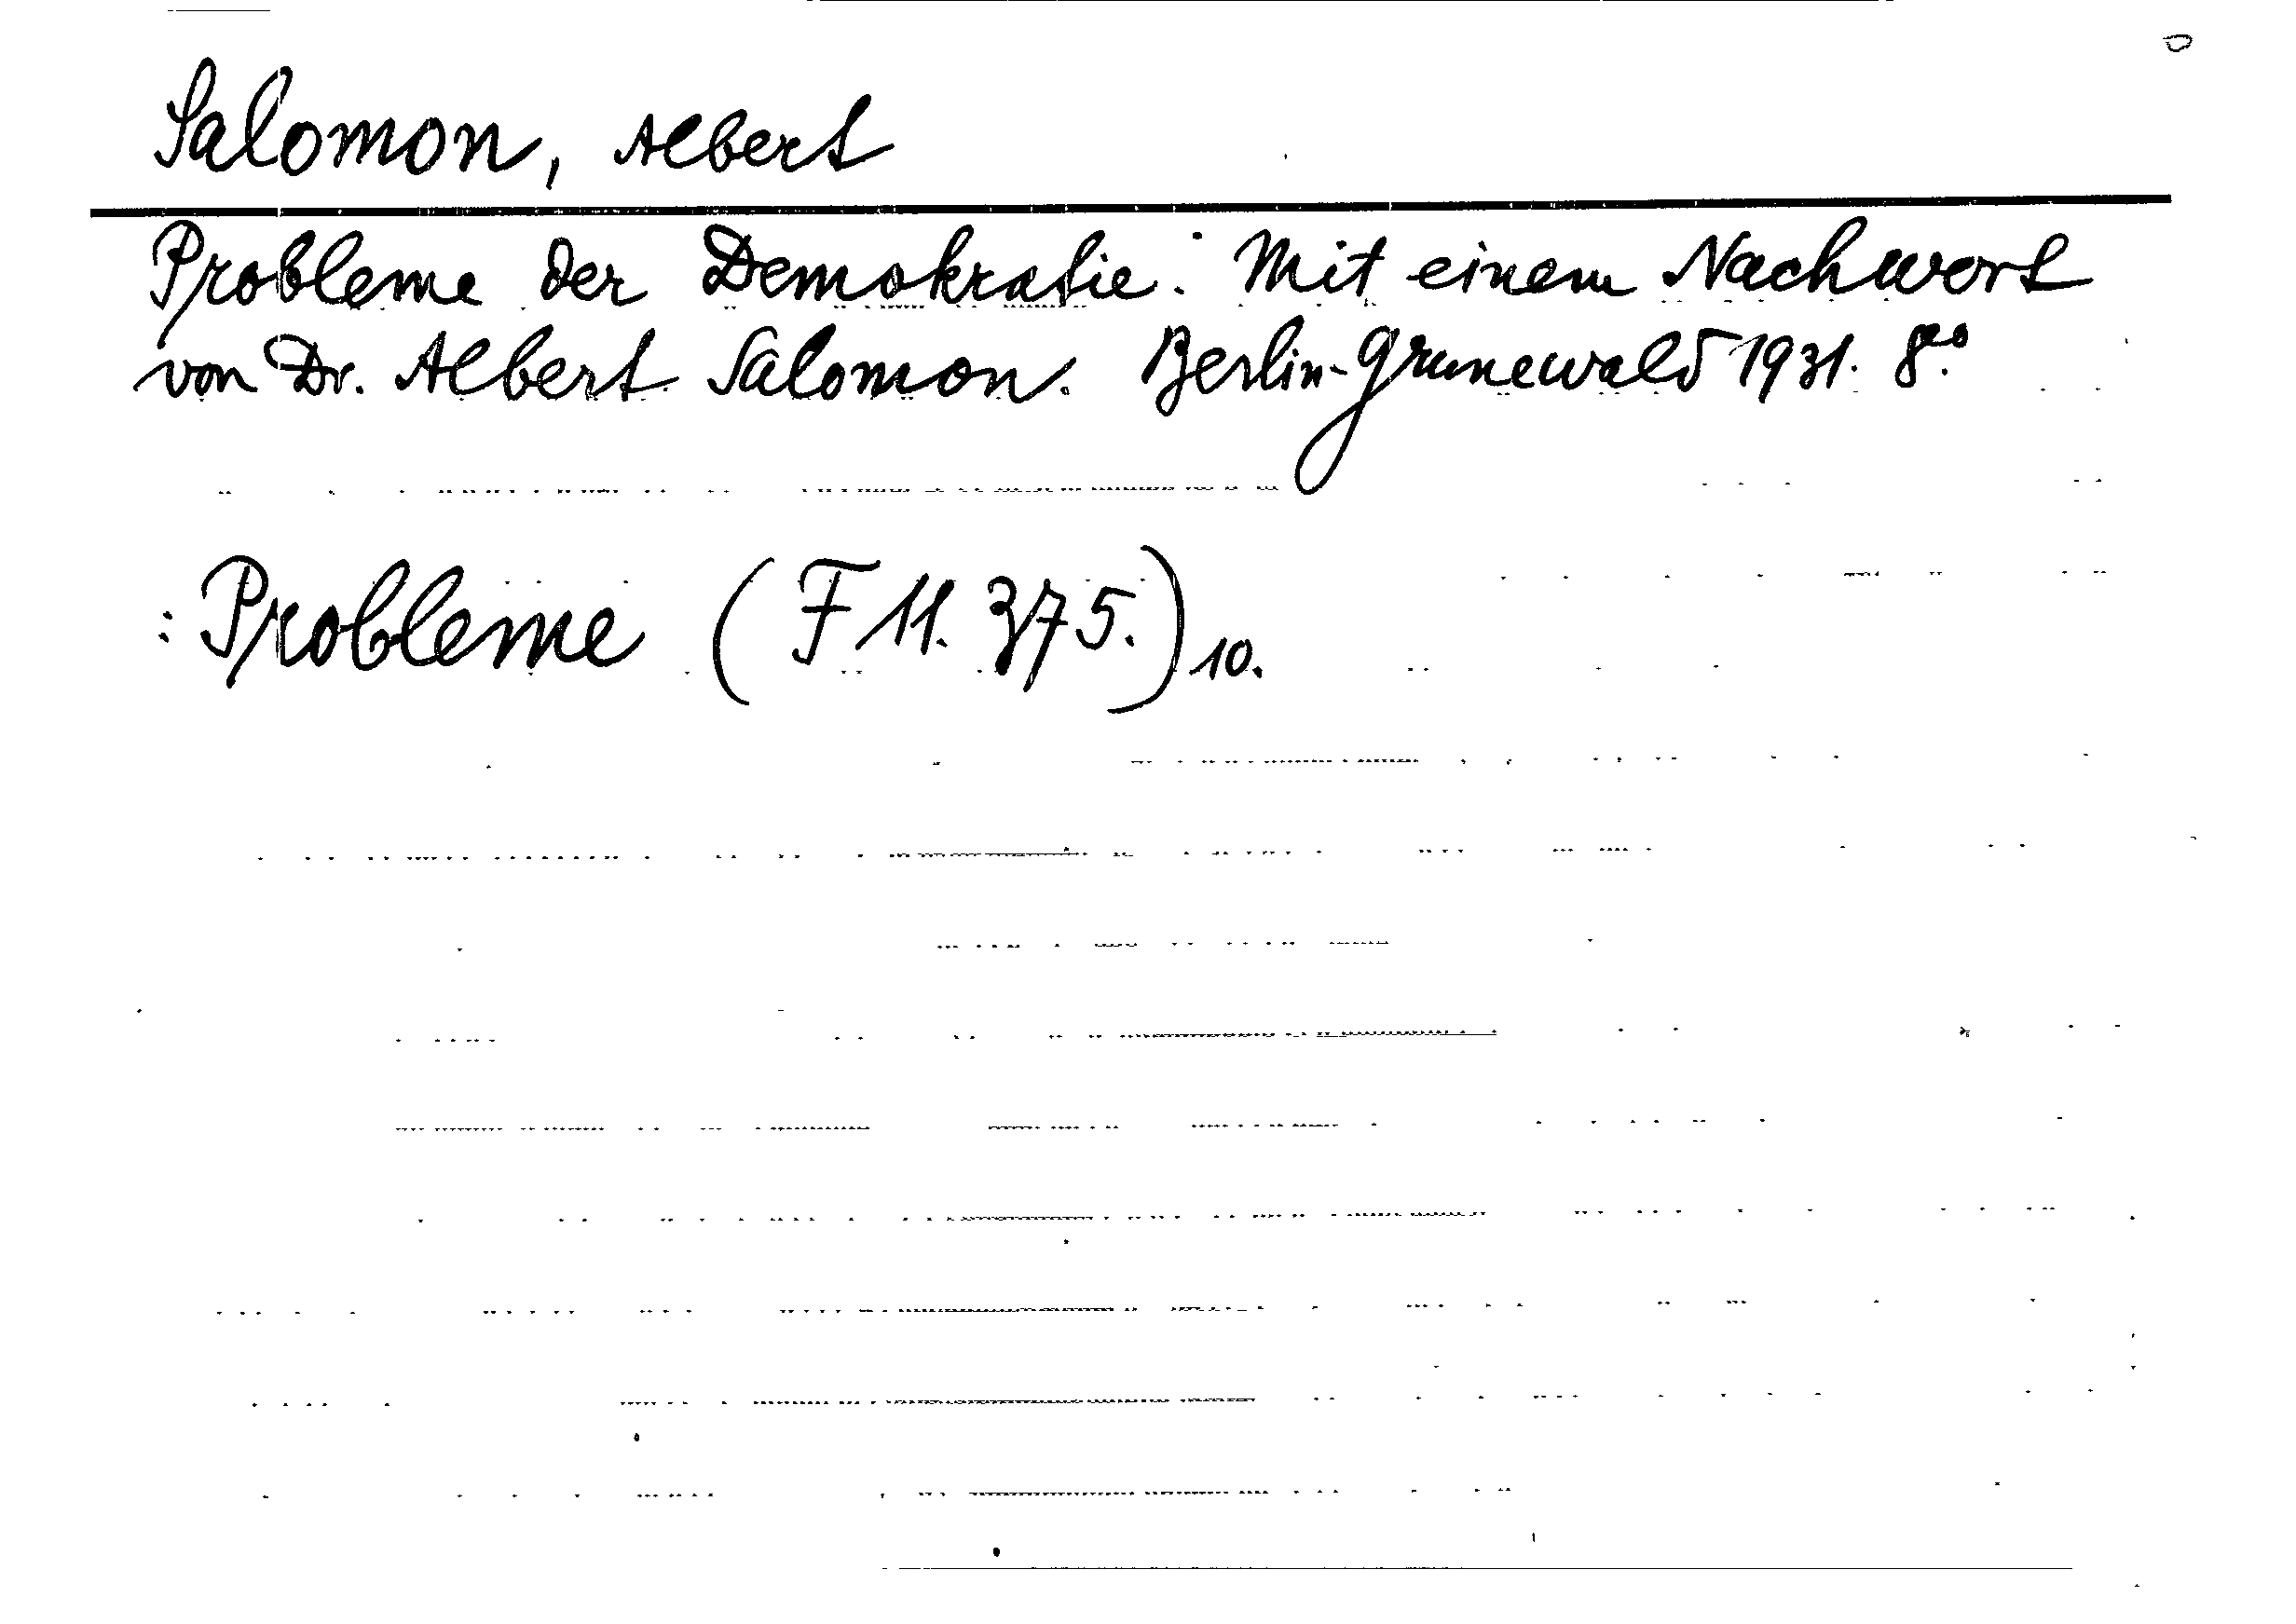 Salomon, Albert
Probleme der Demokratie. Mit einem Nachwort
von Dr. Albert Salomon. Berlin-Grunewald 1931. 8°.
: Probleme (F 11. 375.) 10.